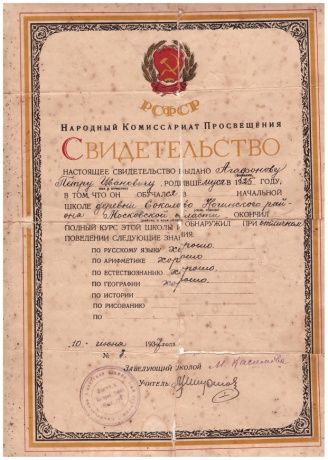 РСФСР
НАРОДНЫЙ КОМИССАРИАТ ПРОСВЕЩЕНИЯ
СВИДЕТЕЛЬСТВО
НАСТОЯЩЕЕ СВИДЕТЕЛЬСТВО ВЫДАНО Агафонову
Петру Ивановичу, РОДИВШЕМУСЯ В 1925 ГОДУ,
В ТОМ, ЧТО ОН ОБУЧАЛСЯ В НАЧАЛЬНОЙ
ШКОЛЕ деревни Соколово Ногинского рай-
она Московской области ОКОНЧИЛ
ПОЛНЫЙ КУРС ЭТОЙ ШКОЛЫ ОБНАРУЖИЛ ПРИ отличном
ПОВЕДЕНИИ СЛЕДУЮЩИЕ ЗНАНИЯ:
ПО РУССКОМУ ЯЗЫКУ хорошо.
ПО АРИФМЕТИКЕ хорошо
ПО ЕСТЕСТВОЗНАНИЮ хорошо.
ПО ГЕОГРАФИИ хорошо.
ПО ИСТОРИИ
ПО РИСОВАНИЮ
ПО
10 июня 193 года
№ 8.
ЗАВЕДУЮЩИЙ ШКОЛОЙ
УЧИТЕЛЬ